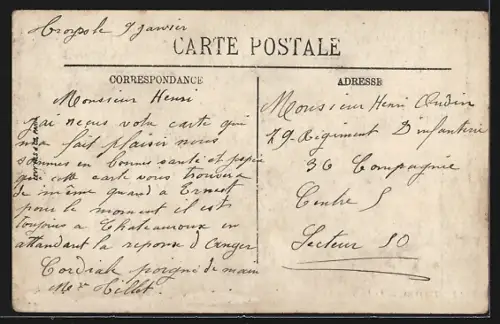 9 Janvier
CARTE POSTALE
CORRESPONDANCE
Monsieur Henri
j'ai reçus votre carte qui
ma fait plaisir nous
sommes en bonnes santé et
que cette carte vous trouvera
de même quand a Ernest
pour le moment il est
toujours a Chateauroux en
attendant la reponse d'Anger
Cordiale poigné de main
Mr Hillot
ADRESSE
Monsieur Henri
79 Regiment D'infanterie
36 Compagnie
Centre S
Secteur 50